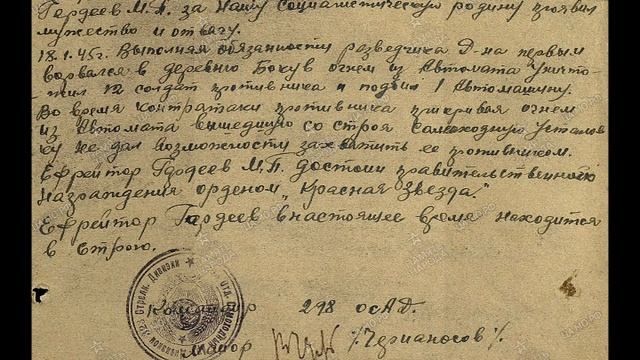 Гордеев М.П. за нашу социалистическую родину проявил
мужество и отвагу.
18.1.45г. Выполняя обязанности разведчика Д-на первым
ворвался в деревню Бокув огнем из Автомата уничто-
жил 12 солдат противника и подбил 1 Автомашину.
Во время контратаки противника прикрывая огнем
из Автомата вышедшую со строя Самоходную Установ
ку не дал возможности захватить ее противником.
Ефрейтор Гордеев М.П. достоин правительственного
награждения орденом „Красная Звезда."
Ефрейтор Гордеев в настоящее время находится
в Строю.
Командир 298 осАД.
Майор /Черианосов/.
Стрелк. Дивизии
ЦАМО РФ